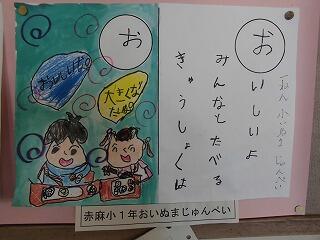 お
いしいよ
みんなとたべる
きゅうしょくは
一ねん 小いぬま じゅんぺい
お
大きくな
赤麻小1年おいぬまじゅんぺい